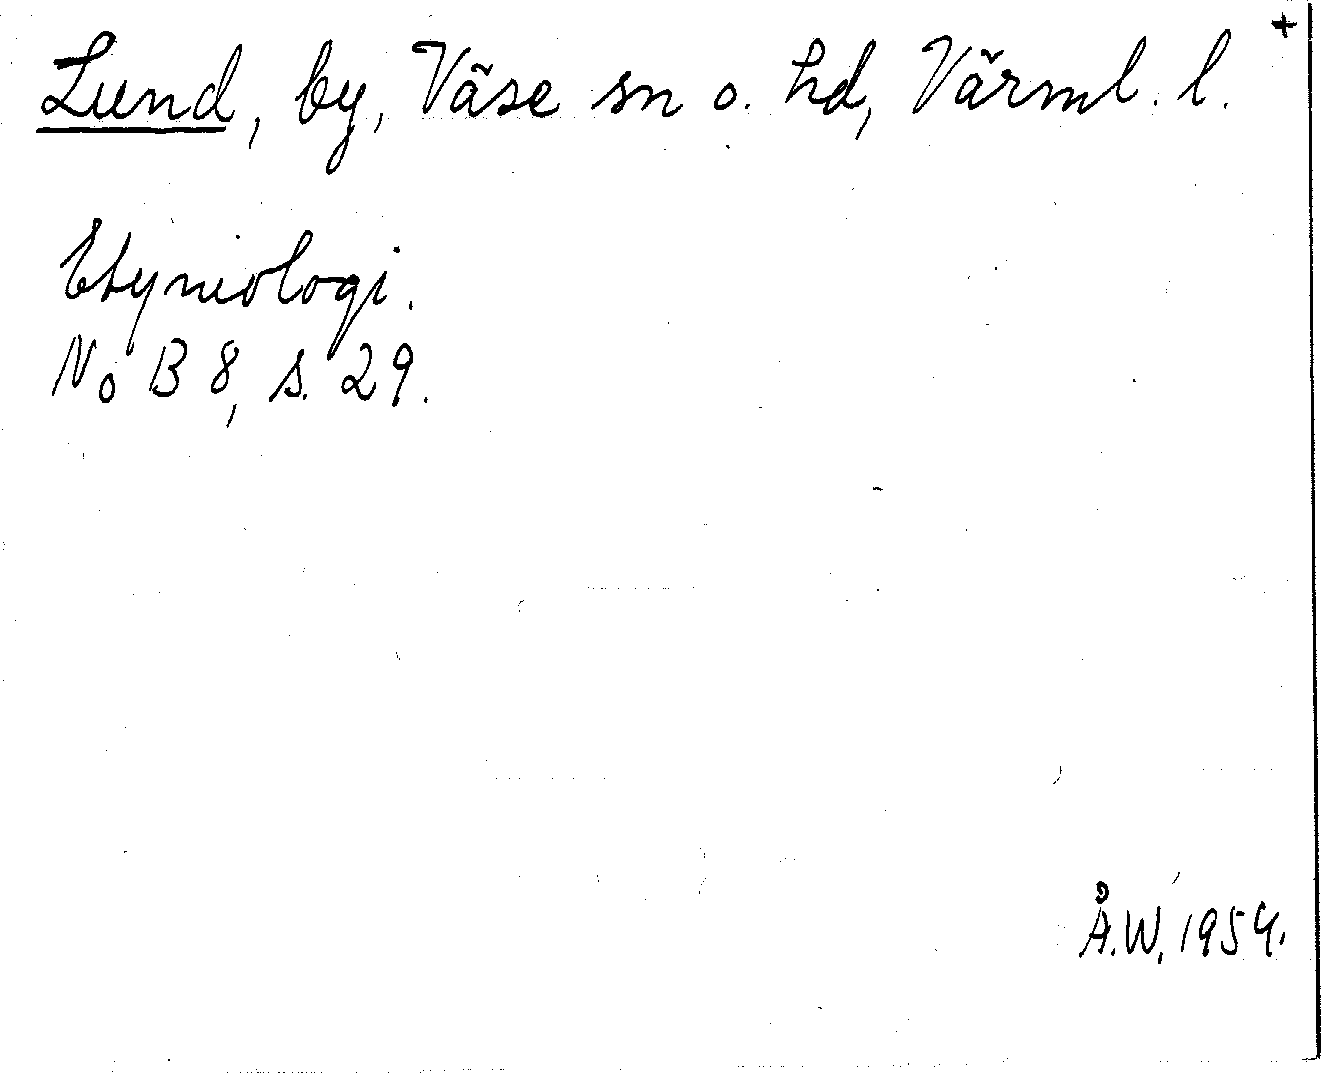 +
Lund, by, Väse sn o. hd, Värml. l.
Etymologi.
NoB 8, s. 29.
Å.W. 1954.